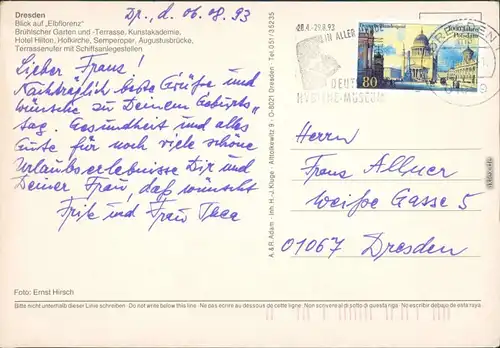 Dresden
Blick auf „Elbflorenz"
Brühlscher Garten und -Terrasse, Kunstakademie,
Hotel Hilton, Hofkirche, Semperoper, Augustusbrücke,
Terrassenufer mit Schiffsanlegestellen
Dr., d. 06.08.93
Lieber Franz!
Nachträglich beste Grüße und
wünsche zu Deinem Geburts
tag. Gesundheit und alles
Gute für noch viele schöne
Urlaubserlebnisse Dir und
Deiner Frau, daß wünscht
Fritz und Frau Thea
Foto: Ernst Hirsch
A. & R. Adam - Inh. H.-J. Kluge · Altlolkewitz 9 · O-8021 Dresden · Tel. 051/35235
28.4.-29.8.93
IN ALLER
DEUT
HYGIENE-MUSEUM
Deutsche Bundespost
1000 Jahre
Potsdam
80
DRESDEN
Herrn
Franz Allner
weiße Gasse 5
01067 Dresden
Bitte nicht unterhalb dieser Linie schreiben · Do not write below this line · Ne pas écrire au dessous de cette ligne. Non scrivere al di sotto di questa riga. No escribir debajo de esta raya.